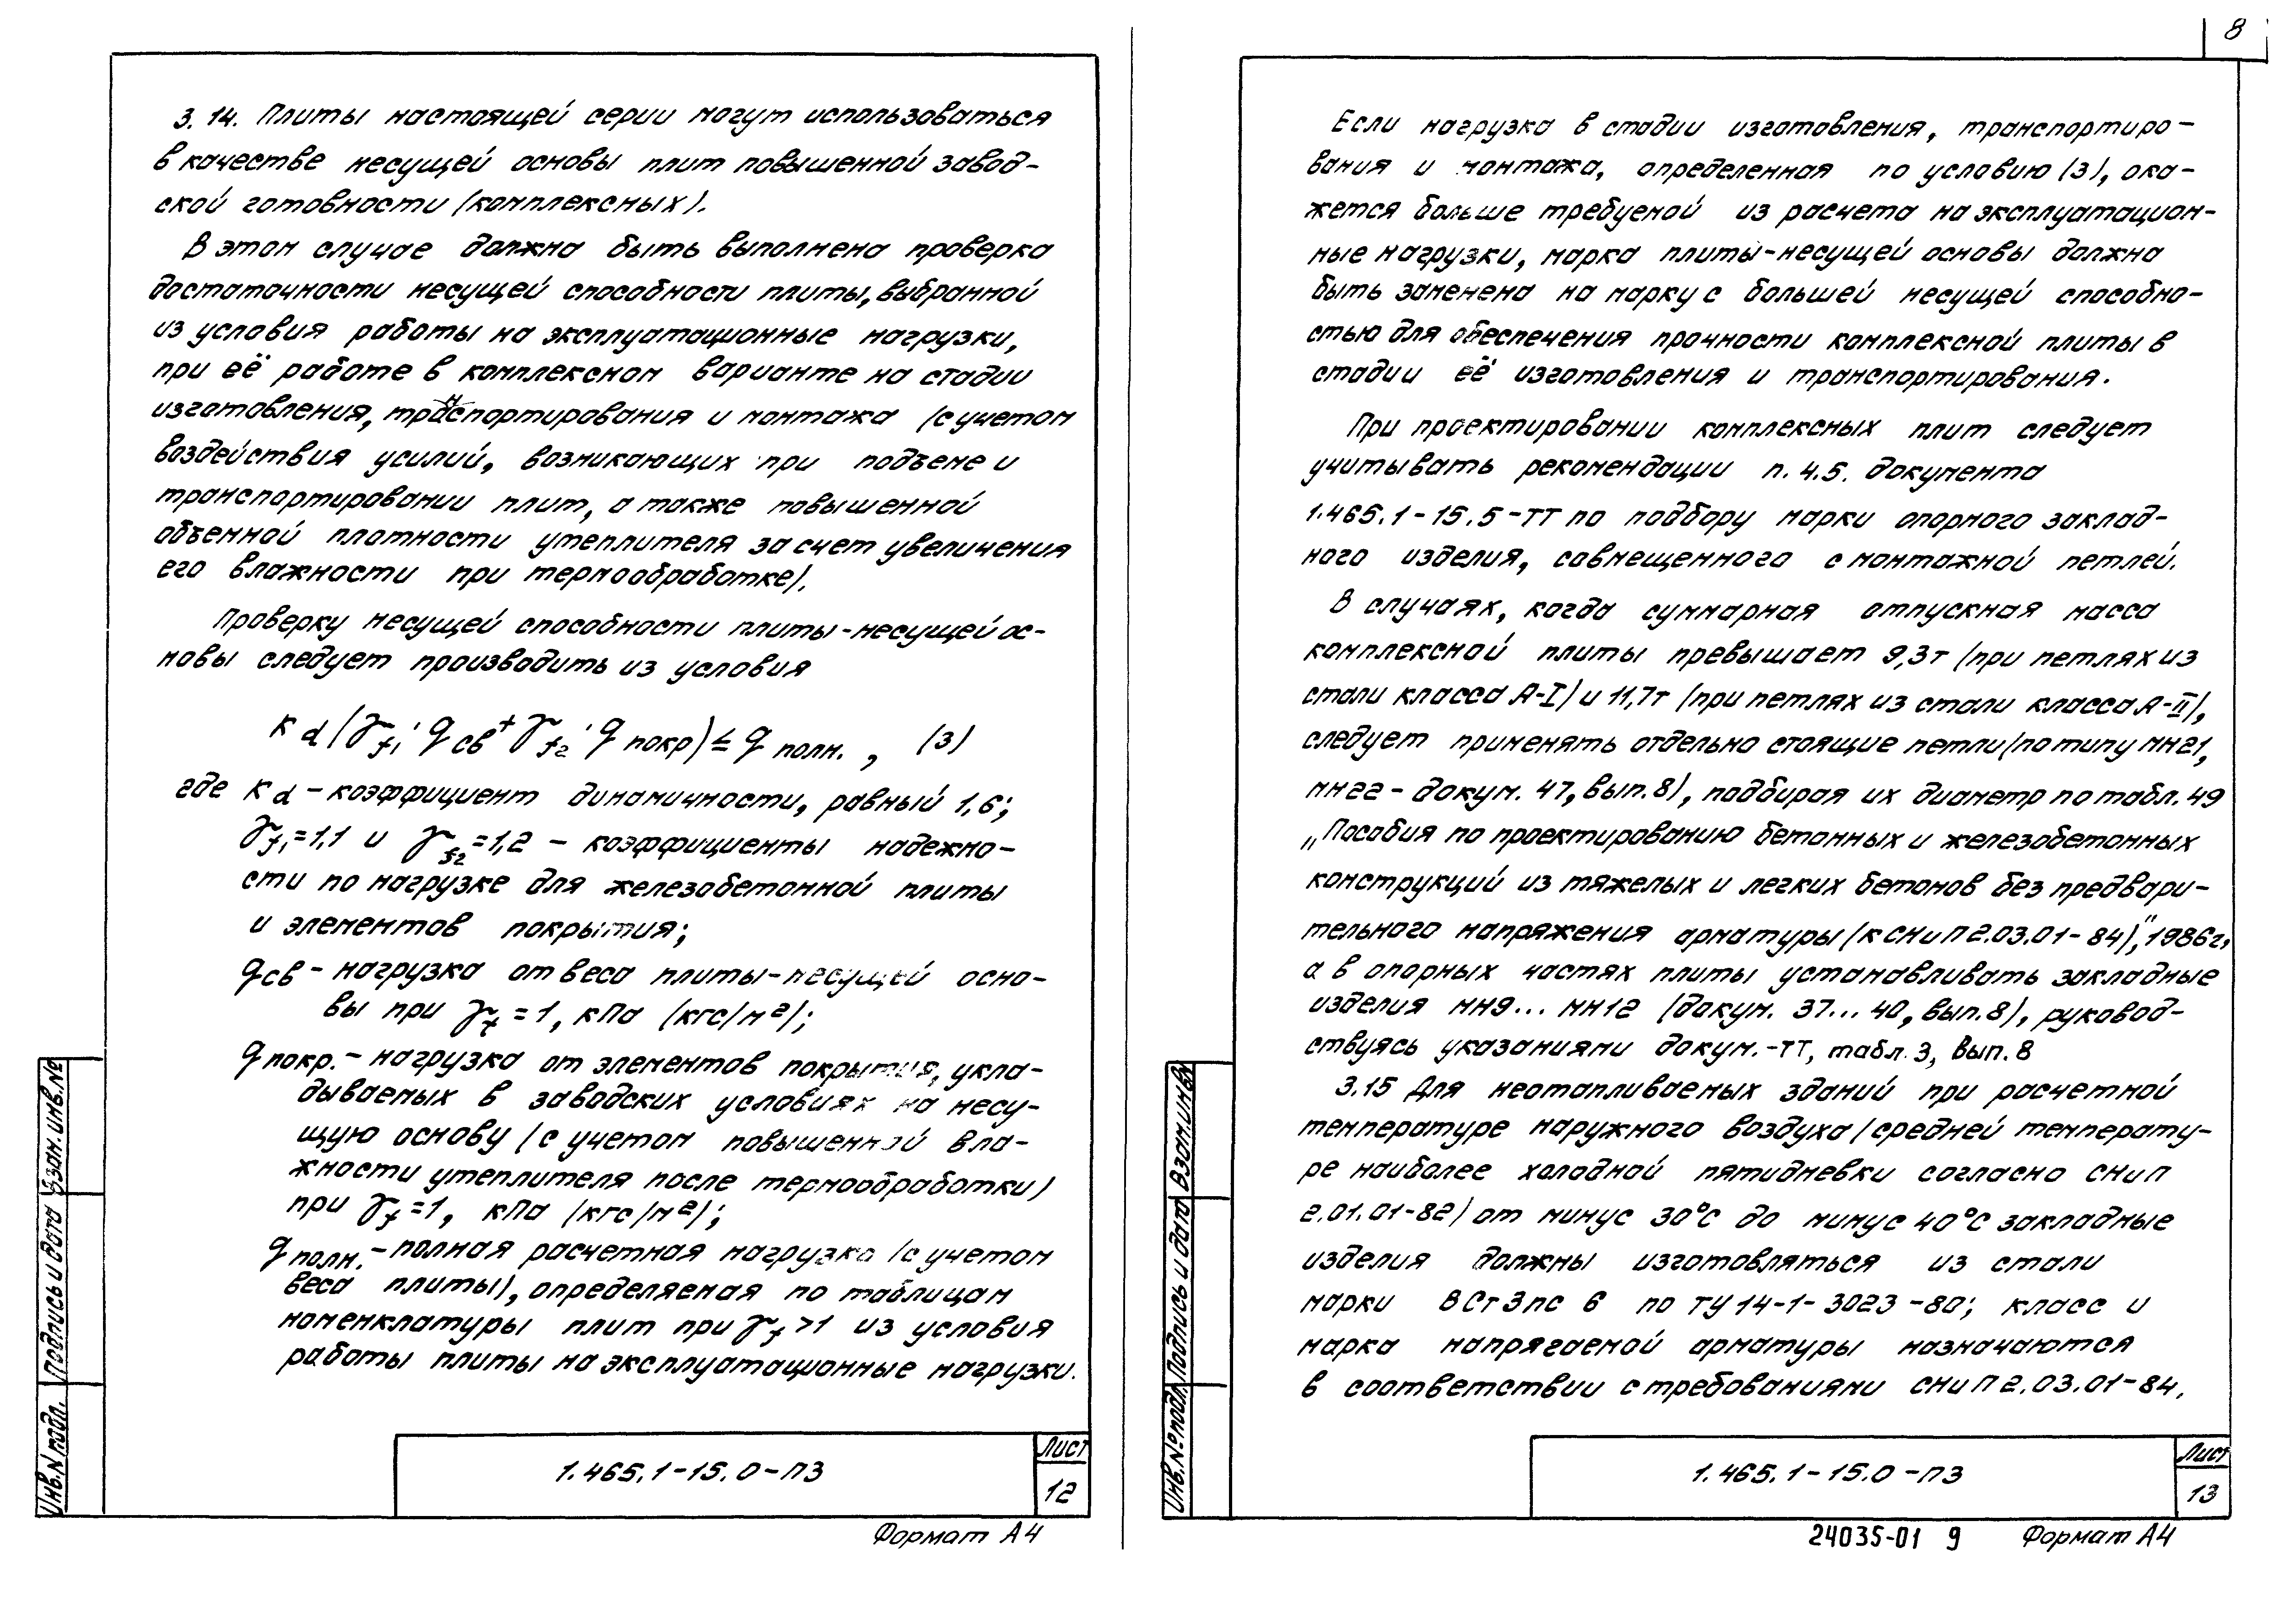 8
3.14. Плиты настоящей серии могут использоваться
в качестве несущей основы плит повышенной завод-
ской готовности (комплексных).
В этом случае должна быть выполнена проверка
достаточности несущей способности плиты, выбранной
из условия работы на эксплуатационные нагрузки,
при её работе в комплексном варианте на стадии
изготовления, транспортирования и монтажа (с учетом
воздействия усилий, возникающих при подъеме и
транспортировании плит, а также повышенной
объемной плотности утеплителя за счет увеличения
его влажности при термообработке).
Проверку несущей способности плиты-несущей ос-
новы следует производить из условия
Kd(γf1·qсв+γf2·qпокр)≤qполн. , (3)
где Kd – коэффициент динамичности, равный 1,6;
γf1=1,1 и γf2=1,2 – коэффициенты надежно-
сти по нагрузке для железобетонной плиты
и элементов покрытия;
qсв – нагрузка от веса плиты-несущей осно-
вы при γf=1, кПа (кгс/м²);
qпокр. – нагрузка от элементов покрытия, укла-
дываемых в заводских условиях на несу-
щую основу (с учетом повышенной вла-
жности утеплителя после термообработки)
при γf=1, кПа (кгс/м²);
qполн. – полная расчетная нагрузка (с учетом
веса плиты), определяемая по таблицам
номенклатуры плит при γf>1 из условия
работы плиты на эксплуатационные нагрузки.
Инв.N подл. Подпись и дата Взам.инв.№
1.465.1-15.0-ПЗ
Лист
12
Формат А4
Если нагрузка в стадии изготовления, транспортиро-
вания и монтажа, определенная по условию (3), ока-
жется больше требуемой из расчета на эксплуатацион-
ные нагрузки, марка плиты-несущей основы должна
быть заменена на марку с большей несущей способно-
стью для обеспечения прочности комплексной плиты в
стадии её изготовления и транспортирования.
При проектировании комплексных плит следует
учитывать рекомендации п. 4.5. документа
1.465.1-15.5-ТТ по подбору марки опорного заклад-
ного изделия, совмещенного с монтажной петлей.
В случаях, когда суммарная отпускная масса
комплексной плиты превышает 9,3т (при петлях из
стали класса А-I) и 11,7т (при петлях из стали класса А-II),
следует применять отдельно стоящие петли (по типу МН21,
МН22 – докум. 47, вып.8), подбирая их диаметр по табл. 49
„Пособия по проектированию бетонных и железобетонных
конструкций из тяжелых и легких бетонов без предвари-
тельного напряжения арматуры (к СНиП 2.03.01-84)", 1986г,
а в опорных частях плиты устанавливать закладные
изделия МН9... МН12 (докум. 37... 40, вып.8), руковод-
ствуясь указаниями докум.-ТТ, табл.3, вып.8
3.15 Для неотапливаемых зданий при расчетной
температуре наружного воздуха (средней температу-
ре наиболее холодной пятидневки согласно СНиП
2.01.01-82) от минус 30°С до минус 40°С закладные
изделия должны изготовляться из стали
марки ВСт3пс 6 по ТУ 14-1-3023-80; класс и
марка напрягаемой арматуры назначаются
в соответствии с требованиями СНиП 2.03.01-84.
Инв.№подл. Подпись и дата Взам.инв№
1.465.1-15.0-ПЗ
Лист
13
24035-01 9 Формат А4